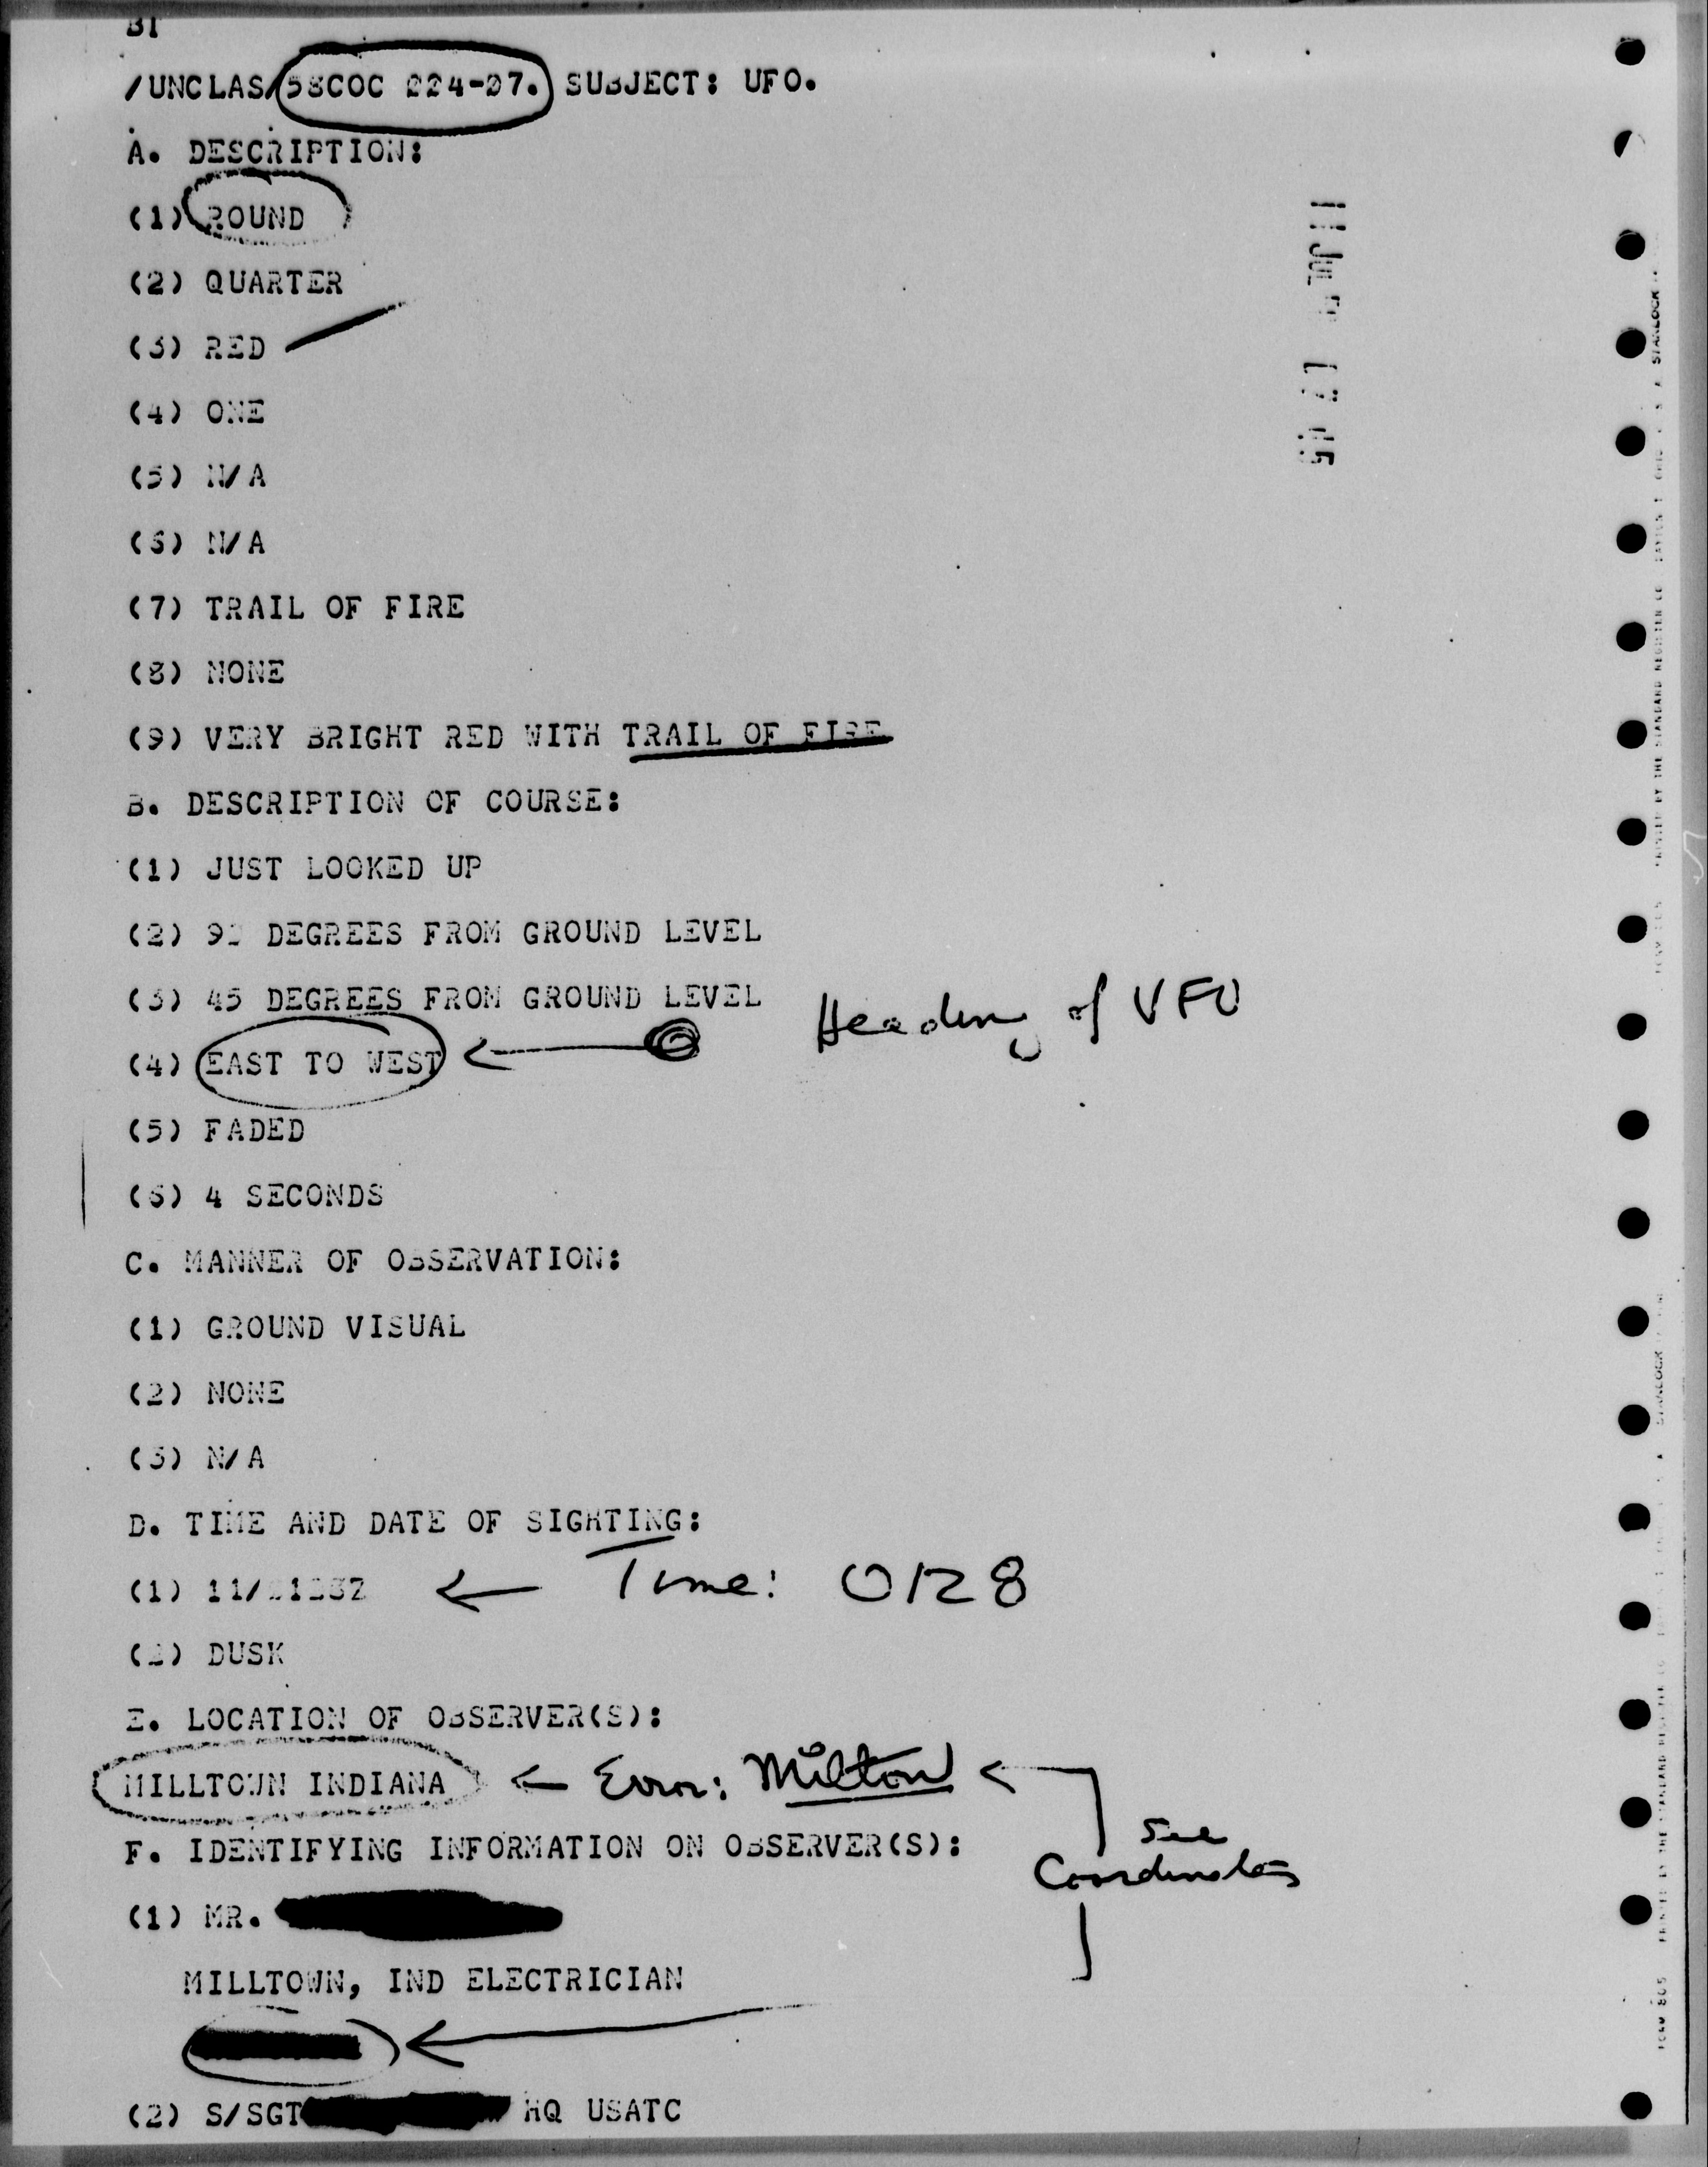 /UNCLAS/58COC 224-27. SUBJECT: UFO.
A. DESCRIPTION:
(1) ROUND
(2) QUARTER
(3) RED
(4) ONE
(5) N/A
(6) N/A
(7) TRAIL OF FIRE
(8) NONE
(9) VERY BRIGHT RED WITH TRAIL OF FIRE
B. DESCRIPTION OF COURSE:
(1) JUST LOOKED UP
(2) 90 DEGREES FROM GROUND LEVEL
(3) 45 DEGREES FROM GROUND LEVEL
Heading of UFO
(4) EAST TO WEST
(5) FADED
(6) 4 SECONDS
C. MANNER OF OBSERVATION:
(1) GROUND VISUAL
(2) NONE
(3) N/A
D. TIME AND DATE OF SIGHTING:
(1) 11/ ← Time: 0128
(2) DUSK
E. LOCATION OF OBSERVER(S):
MILLTOWN INDIANA ← Error: Milton ←
See
Coordinates
F. IDENTIFYING INFORMATION ON OBSERVER(S):
(1) MR.
MILLTOWN, IND ELECTRICIAN
(2) S/SGT HQ USATC
11 JUL